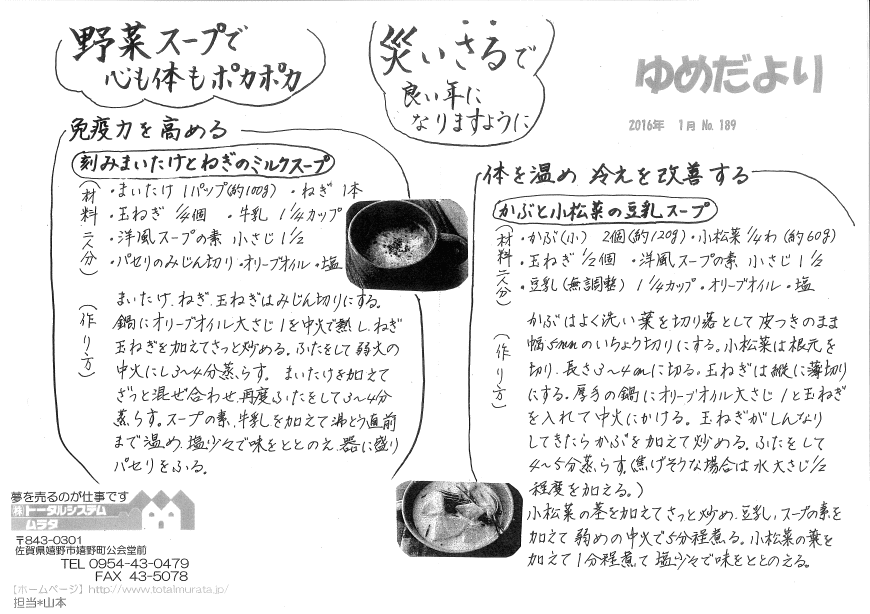 野菜スープで
心も体もポカポカ
災いさるで
良い年に
なりますように
ゆめだより
2016年 1月 No. 189
免疫力を高める
刻みまいたけとねぎのミルクスープ
(材料二人分)
・まいたけ 1パック(約100g) ・ねぎ 1本
・玉ねぎ 1/4個 ・牛乳 1 1/4カップ
・洋風スープの素 小さじ 1 1/2
・パセリのみじん切り・オリーブオイル・塩
(作り方)
まいたけ、ねぎ、玉ねぎはみじん切りにする。
鍋にオリーブオイル大さじ1を中火で熱し、ねぎ
玉ねぎを加えてさっと炒める。ふたをして弱火の
中火にし3~4分蒸らす。 まいたけを加えて
ざっと混ぜ合わせ、再度ふたをして3~4分
蒸らす。スープの素、牛乳を加えて沸とう直前
まで温め、塩少々で味をととのえ、器に盛り
パセリをふる。
体を温め 冷えを改善する
かぶと小松菜の豆乳スープ
(材料二人分)
・かぶ(小) 2個(約120g)・小松菜 1/4わ(約60g)
・玉ねぎ 1/2個 ・洋風スープの素 小さじ 1 1/2
・豆乳(無調整) 1 1/4カップ・オリーブオイル・塩
(作り方)
かぶはよく洗い葉を切り落として皮つきのまま
幅5mmのいちょう切りにする。小松菜は根元を
切り、長さ3~4cmに切る。玉ねぎは縦に薄切り
にする。厚手の鍋にオリーブオイル大さじ1と玉ねぎ
を入れて中火にかける。玉ねぎがしんなり
してきたらかぶを加えて炒める。ふたをして
4~5分蒸らす。(焦げそうな場合は水大さじ1/2
程度を加える。)
小松菜の茎を加えてさっと炒め、豆乳、スープの素を
加えて 弱めの中火で5分程煮る。小松菜の葉を
加えて1分程煮て 塩少々で味をととのえる。
夢を売るのが仕事です
㈱トータルシステム
ムラタ
〒843-0301
佐賀県嬉野市嬉野町公会堂前
TEL 0954-43-0479
FAX 43-5078
【ホームページ】http://www.totalmurata.jp/
担当*山本